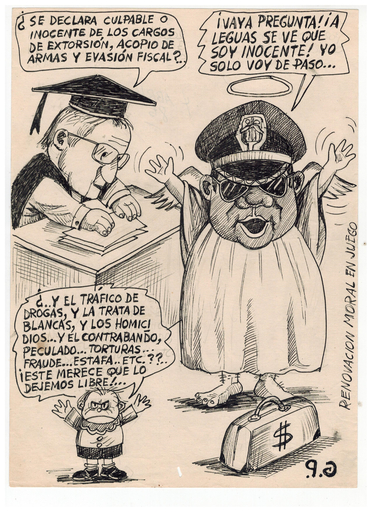 ¿SE DECLARA CULPABLE O
INOCENTE DE LOS CARGOS
DE EXTORSIÓN, ACOPIO DE
ARMAS Y EVASIÓN FISCAL?..
¡VAYA PREGUNTA!¡A
LEGUAS SE VE QUE
SOY INOCENTE! YO
SOLO VOY DE PASO...
¿..Y EL TRÁFICO DE
DROGAS, Y LA TRATA DE
BLANCAS, Y LOS HOMICI
DIOS...Y EL CONTRABANDO,
PECULADO...TORTURAS...
FRAUDE...ESTAFA..ETC.??..
¡ESTE MERECE QUE LO
DEJEMOS LIBRE!...
$
RENOVACION MORAL EN JUEGO
G.P.